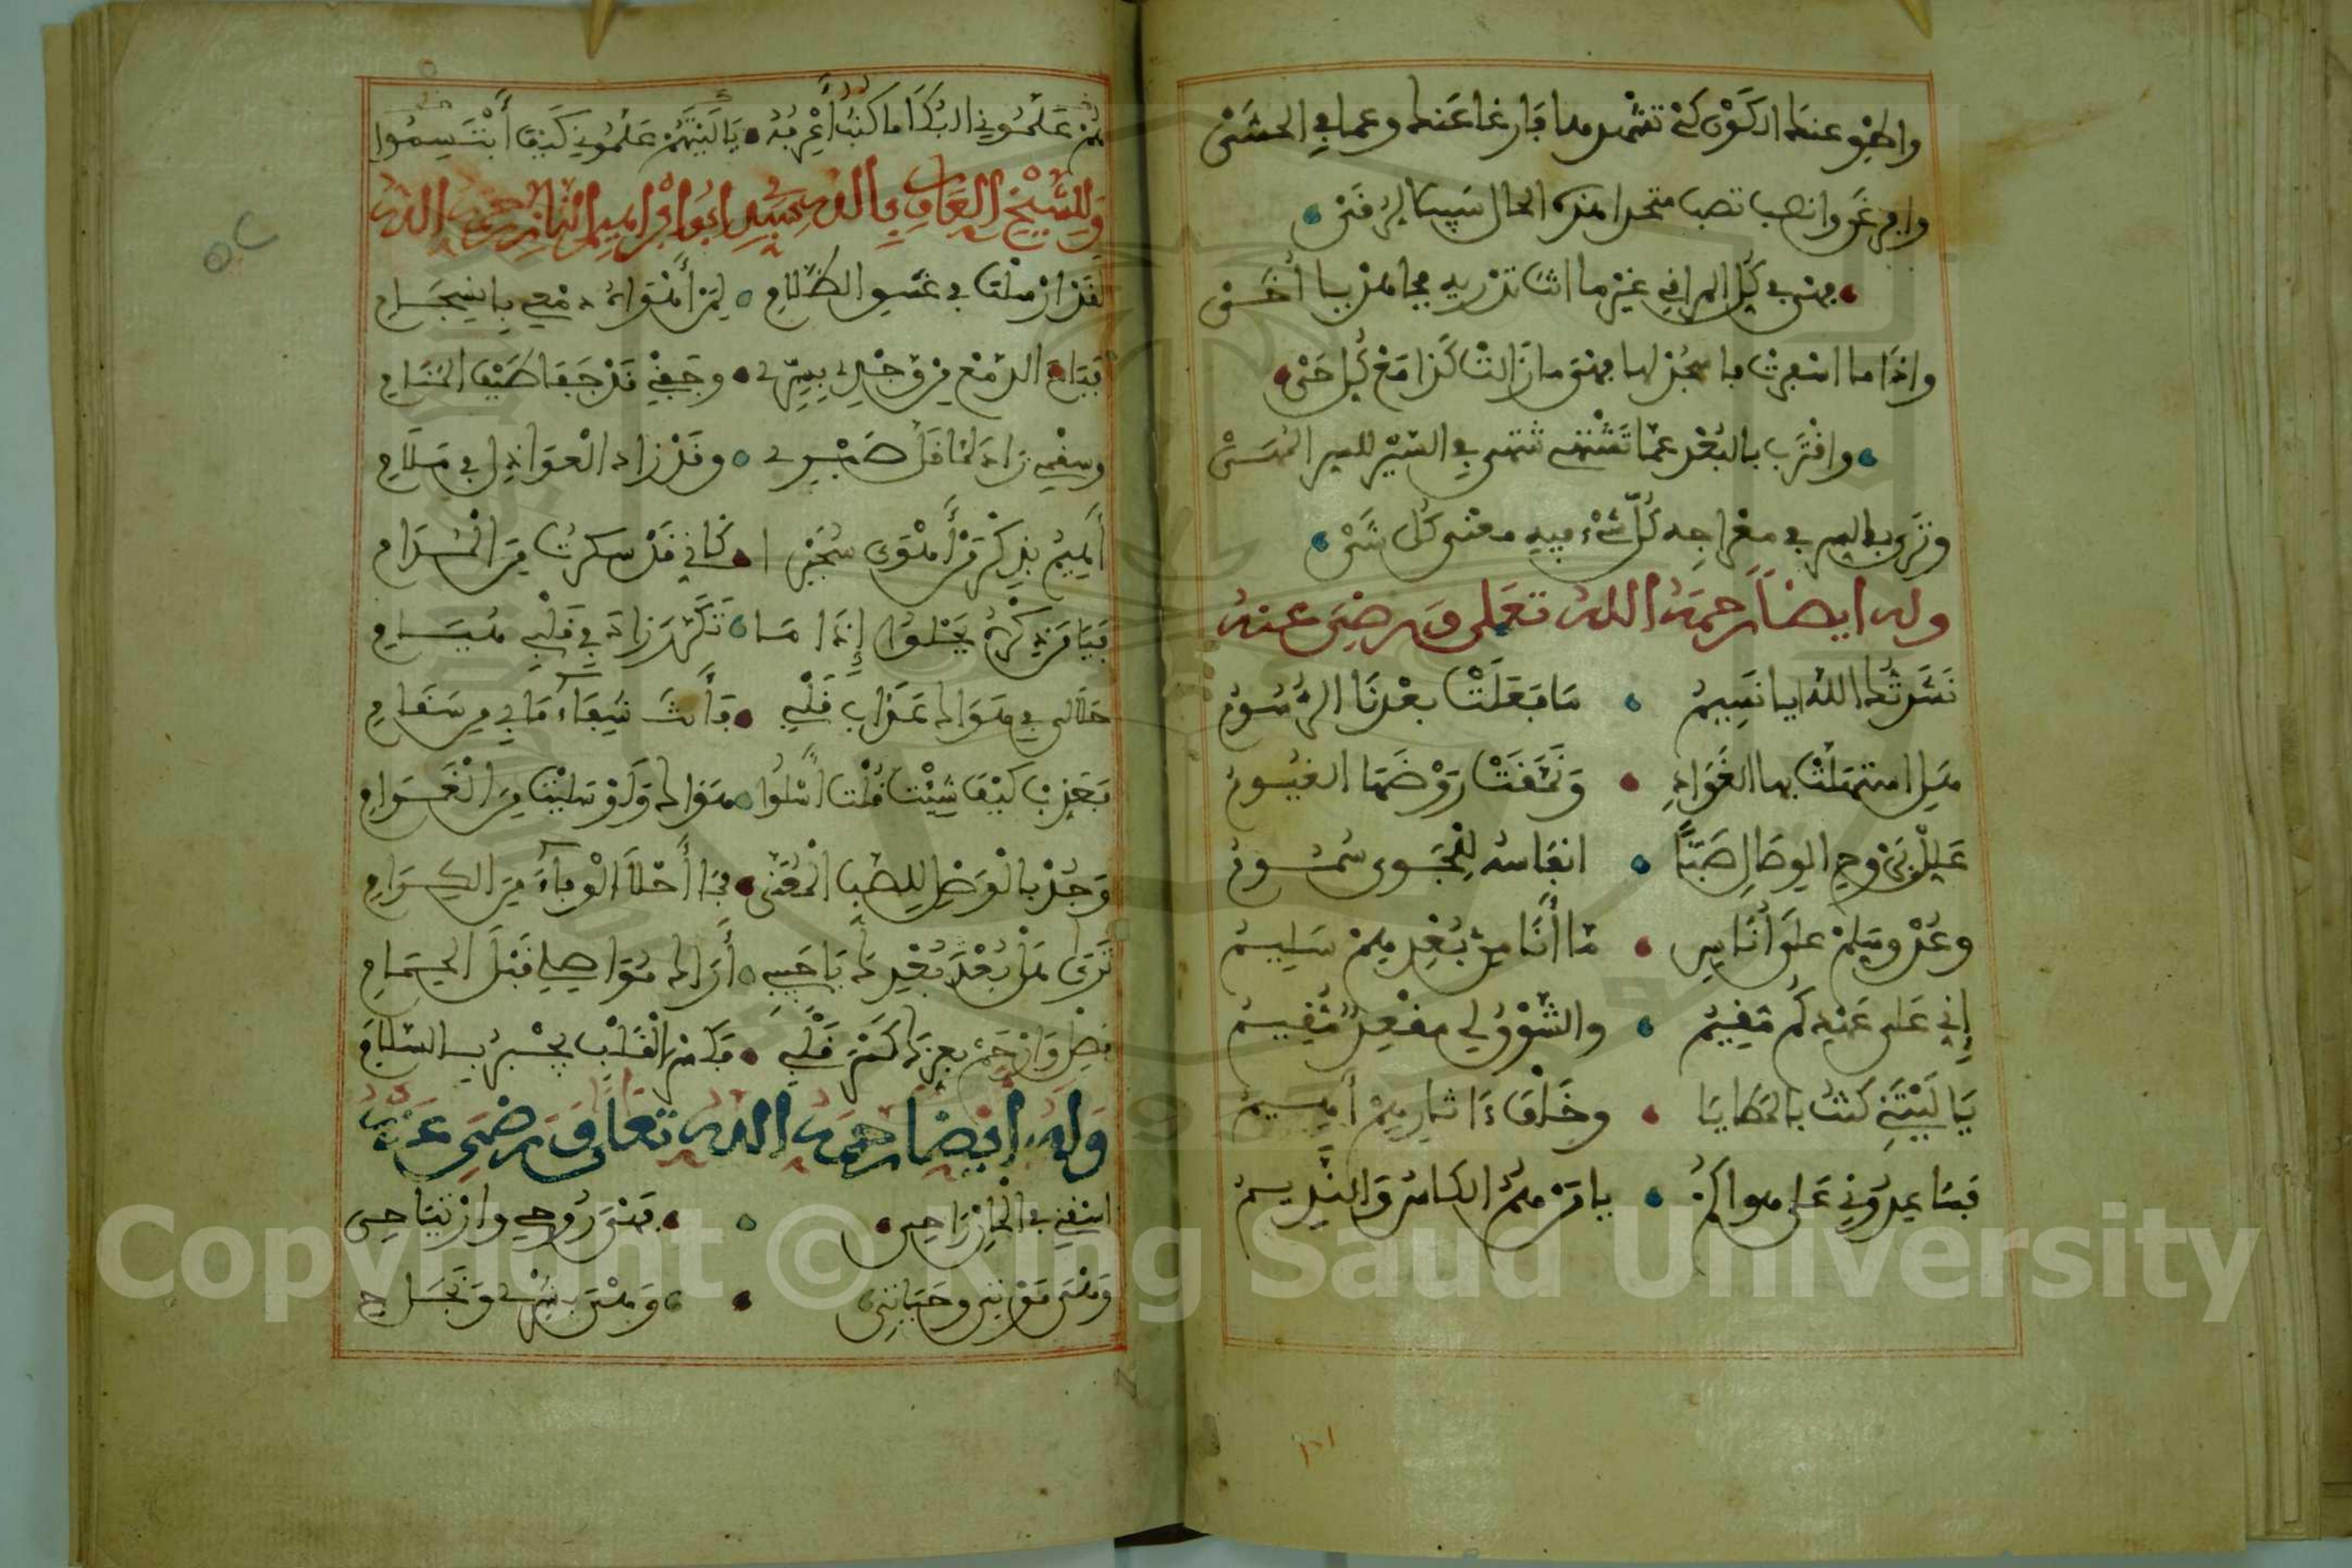 واطو عنك الكون كي تشهدها فارغا عنك وعما في الحشى
وافرغن وانصب تصب متحدا هذه الحال سبيل الرفق
فهي في كل المراني غير ما انت تدريه فجاهد يا أخي
واذا ما اسفرت فاسجد لها فهي ما زالت كذا مع كل حي
واقترب بالبعد عما تشتهي تنتهي في السير للسر المسي
وترى في السر في معراجه كل شيء فيه معنى كل شي
وله ايضا رحمه الله تعلى ورضي عنه
نشدتك الله يا نسيم • ما فعلت بعدنا الرسوم
هل استهلت بها الغوادي • ونمقت روضها الغيوم
علل بروح الوصال صبا • انفاسه للجوى سموم
وعد وسلم على أناس • ما أنا من بعدهم سليم
إني على عهدكم مقيم • والشوق لي مقعد مقيم
يا ليتني كنت بالمطايا • وخلف ءاثارهم أهيم
فساعدوني على هواكم • يا من هم الكاس والنديم
هم علموني البكا ما كنت أعرفه • يا ليتهم علموني كيف أبتسموا
وللشيخ العارف بالله سيدي ابو ابراهيم التازي رحمه الله
لقد ازسلت في غسو الظلام • لمن أهواه دمعي بانسجام
فباح الدمع من وجدي بسري • وجفني قد جفا طيف المنام
وسقمي زاد لما قل صبري • وقد زاد العواذل في ملام
أهيم بذكر من أهوى سحيرا • كاني قد سكرت من المدام
فيا من ذكره يحلوا إذا ما • تكرر زاد في قلبي هيام
حلالي في هواك عذاب قلبي • فأنت شفاء ما بي من سقام
فعذب كيف شيت فلست اسلوا • هواك ولو سليت من الغرام
وجد بالوصل للصب المعنى • فما أحلا الوفاء من الكرام
ترى هل بعد بعدك يا حبيبي • أراك مواصلي قبل الحمام
فصل وارحم بعزك كسر قلبي • فكسر القلب يجبر بالسلام
وله أيضا رحمه الله تعالى ورضي عنه
اسقني في الحان راحي • فهي روحي وارتياحي
وهي موتي وحياتي • وهي سكري وفلاحي